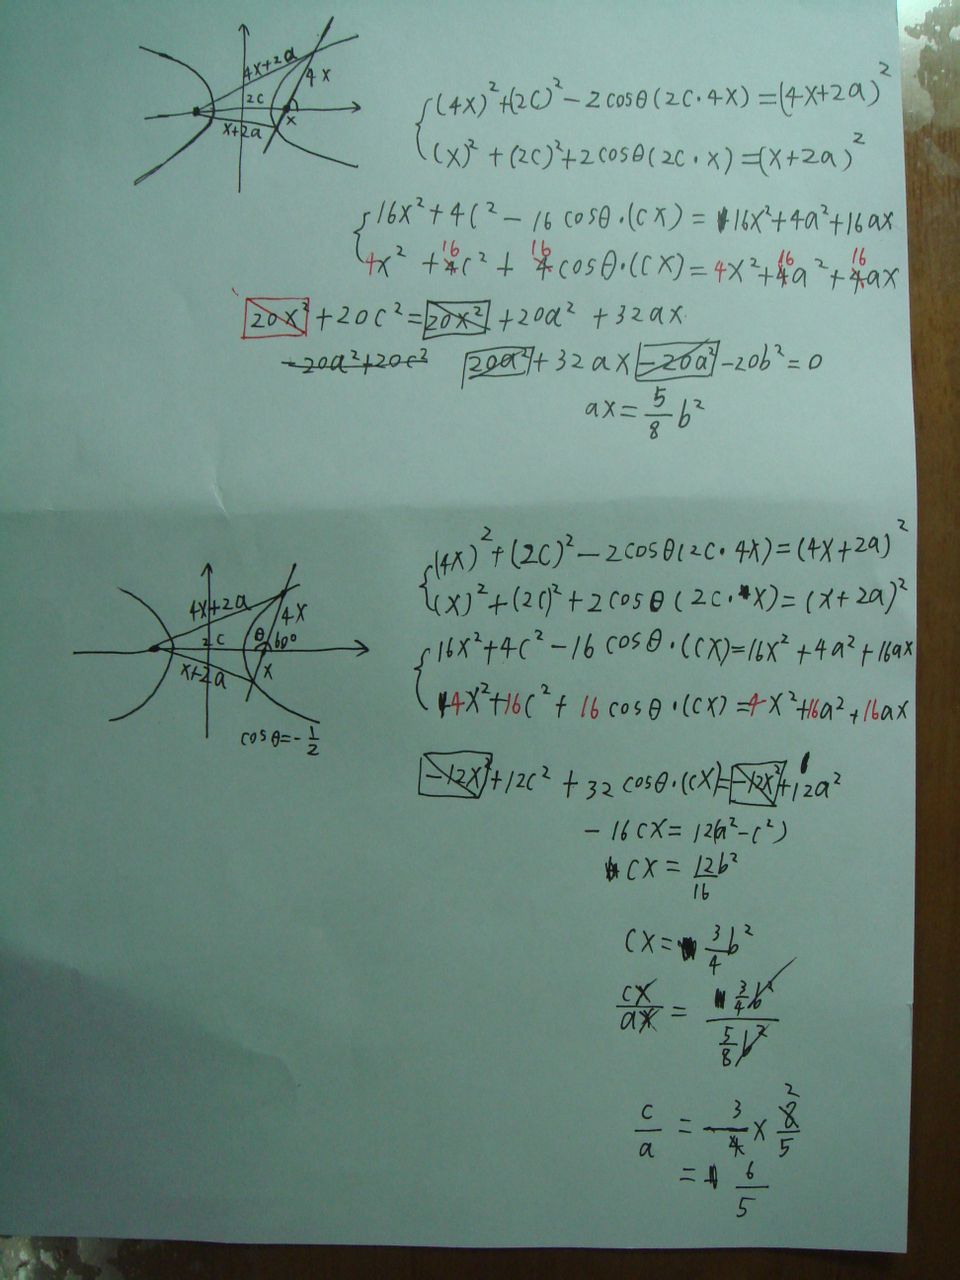 4x+2a
4x
2c
x
x+2a
(4x)²+(2c)²-2cosθ(2c·4x)=(4x+2a)²
(x)²+(2c)²+2cosθ(2c·x)=(x+2a)²
16x²+4c²-16cosθ·(cx)=16x²+4a²+16ax
4x²+16c²+16cosθ·(cx)=4x²+16a²+16ax
20x²+20c²=20x²+20a²+32ax
-20a²+20c² 20a²+32ax-20a²-20b²=0
ax=5/8 b²
(4x)²+(2c)²-2cosθ(2c·4x)=(4x+2a)²
(x)²+(2c)²+2cosθ(2c·x)=(x+2a)²
4x+2a
4x
2c
θ
60°
x+2a
x
cosθ=-1/2
16x²+4c²-16cosθ·(cx)=16x²+4a²+16ax
4x²+16c²+16cosθ·(cx)=4x²+16a²+16ax
-12x²+12c²+32cosθ·(cx)=-12x²+12a²
-16cx=12(a²-c²)
cx=12b²/16
cx=3/4 b²
cx/ax=3/4 b²/5/8 b²
c/a=3/4×8/5
2
=6/5